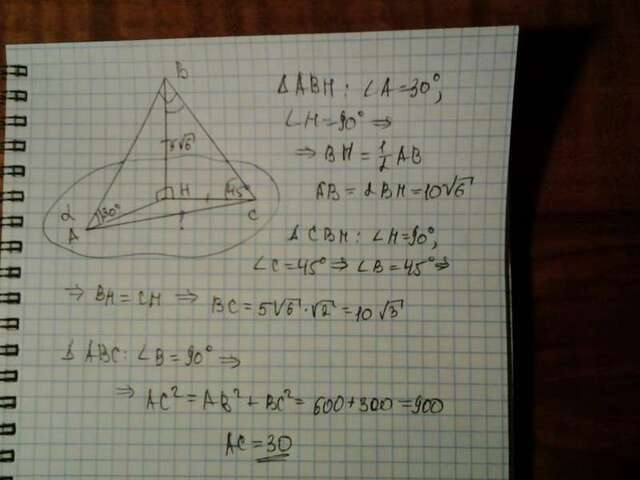 B
5√6
H
45°
α
30°
A
?
C
Δ ABH : ∠A = 30°,
∠H = 90° ⇒
⇒ BH = 1/2 AB
AB = 2BH = 10√6
Δ CBH : ∠H = 90°,
∠C = 45° ⇒ ∠B = 45° ⇒
⇒ BH = CH ⇒ BC = 5√6 · √2 = 10√3
Δ ABC : ∠B = 90° ⇒
⇒ AC² = AB² + BC² = 600 + 300 = 900
AC = 30